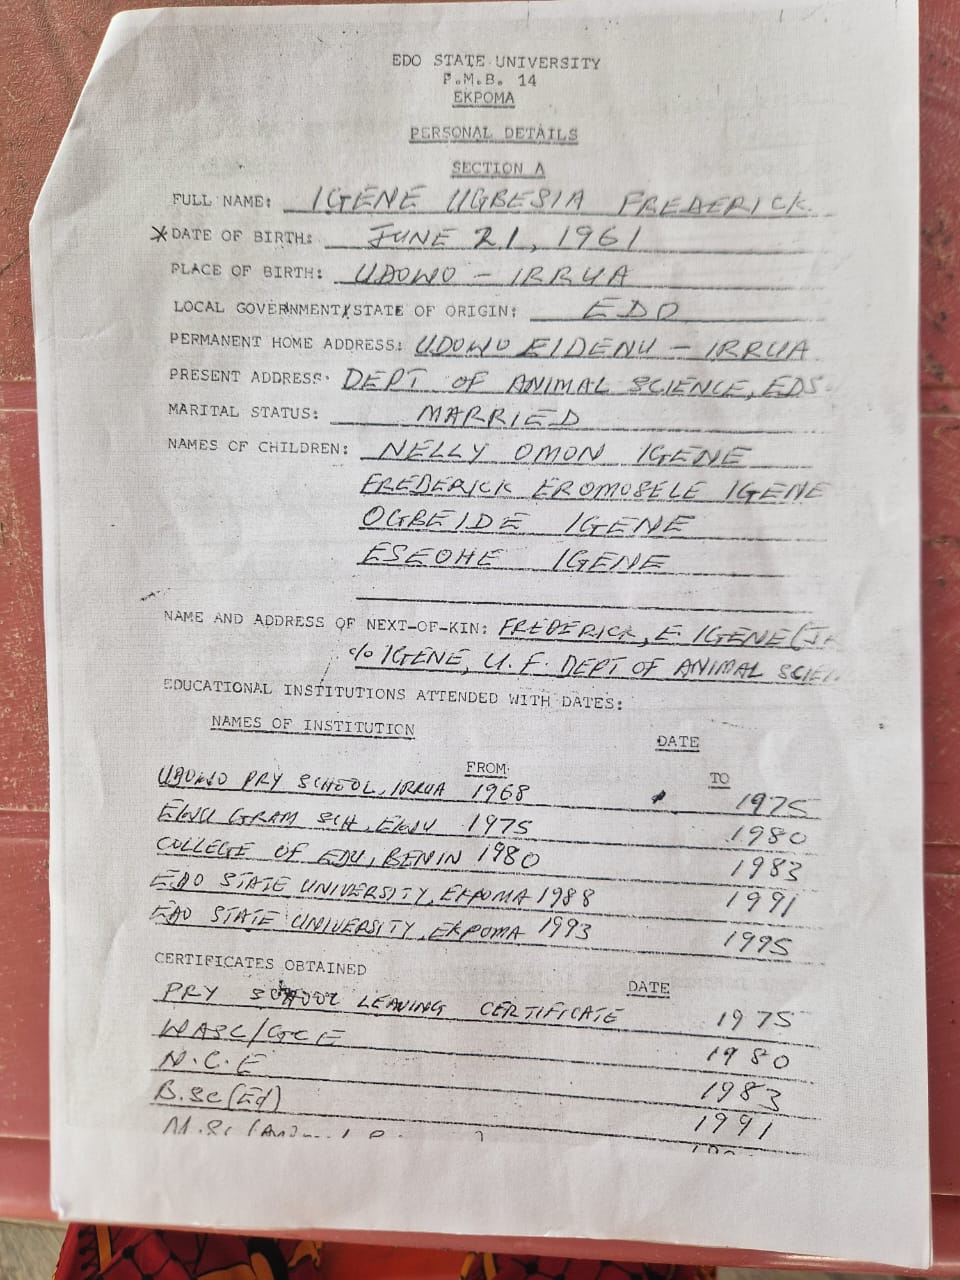 EDO STATE UNIVERSITY
P.M.B. 14
EKPOMA
PERSONAL DETAILS
SECTION A
FULL NAME: IGENE UGBESIA FREDERICK
*DATE OF BIRTH: JUNE 21, 1961
PLACE OF BIRTH: UDOWO - IRRUA
LOCAL GOVERNMENT/STATE OF ORIGIN: EDO
PERMANENT HOME ADDRESS: UDOWO EIDENU - IRRUA
PRESENT ADDRESS: DEPT OF ANIMAL SCIENCE, EDS
MARITAL STATUS: MARRIED
NAMES OF CHILDREN: NELLY OMON IGENE
FREDERICK EROMOSELE IGENE
OGBEIDE IGENE
ESEOHE IGENE
NAME AND ADDRESS OF NEXT-OF-KIN: FREDERICK, E. IGENE (JR
c/o IGENE, U. F. DEPT OF ANIMAL SCIEN
EDUCATIONAL INSTITUTIONS ATTENDED WITH DATES:
NAMES OF INSTITUTION DATE
FROM TO
UDOWO PRY SCHOOL, IRRUA 1968 1975
EWU GRAM SCH, EWU 1975 1980
COLLEGE OF EDU, BENIN 1980 1983
EDO STATE UNIVERSITY, EKPOMA 1988 1991
EDO STATE UNIVERSITY, EKPOMA 1993 1995
CERTIFICATES OBTAINED DATE
PRY SCHOOL LEAVING CERTIFICATE 1975
WASC/GCE 1980
N.C.E 1983
B.Sc (Ed) 1991
M.Sc